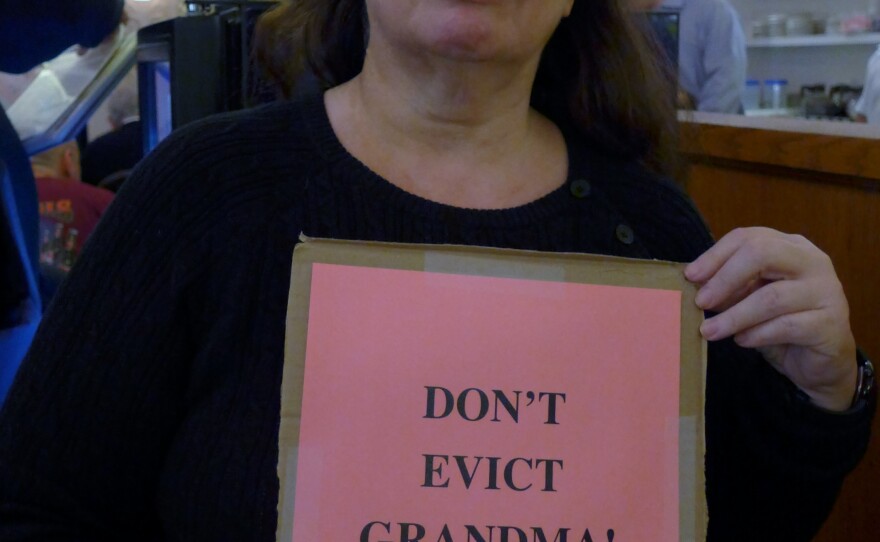 DON'T
EVICT
GRANDMA!